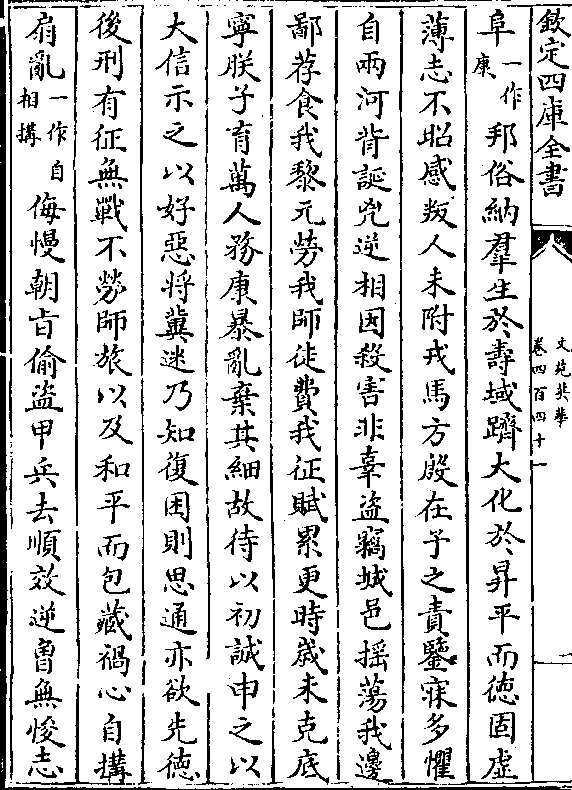 欽定四庫全書
文苑英華
卷四百四十一
阜一作康邦俗納羣生於壽域躋大化於昇平而徳固虚
薄志不昭感叛人未附戎馬方殷在予之責鑒寐多懼
自兩河背誕兇逆相因殺害非辜盜竊城邑揺蕩我邊
鄙荐食我黎元勞我師徒費我征賦累更時歲未克底
寧朕子育萬人務康暴亂棄其細故待以初誠申之以
大信示之以好惡將冀迷乃知復困則思通亦欲先徳
後刑有征無戰不勞師旅以及和平而包藏禍心自搆
扇亂一作自相搆侮慢朝㫖偷盜甲兵去順效逆曾無悛志